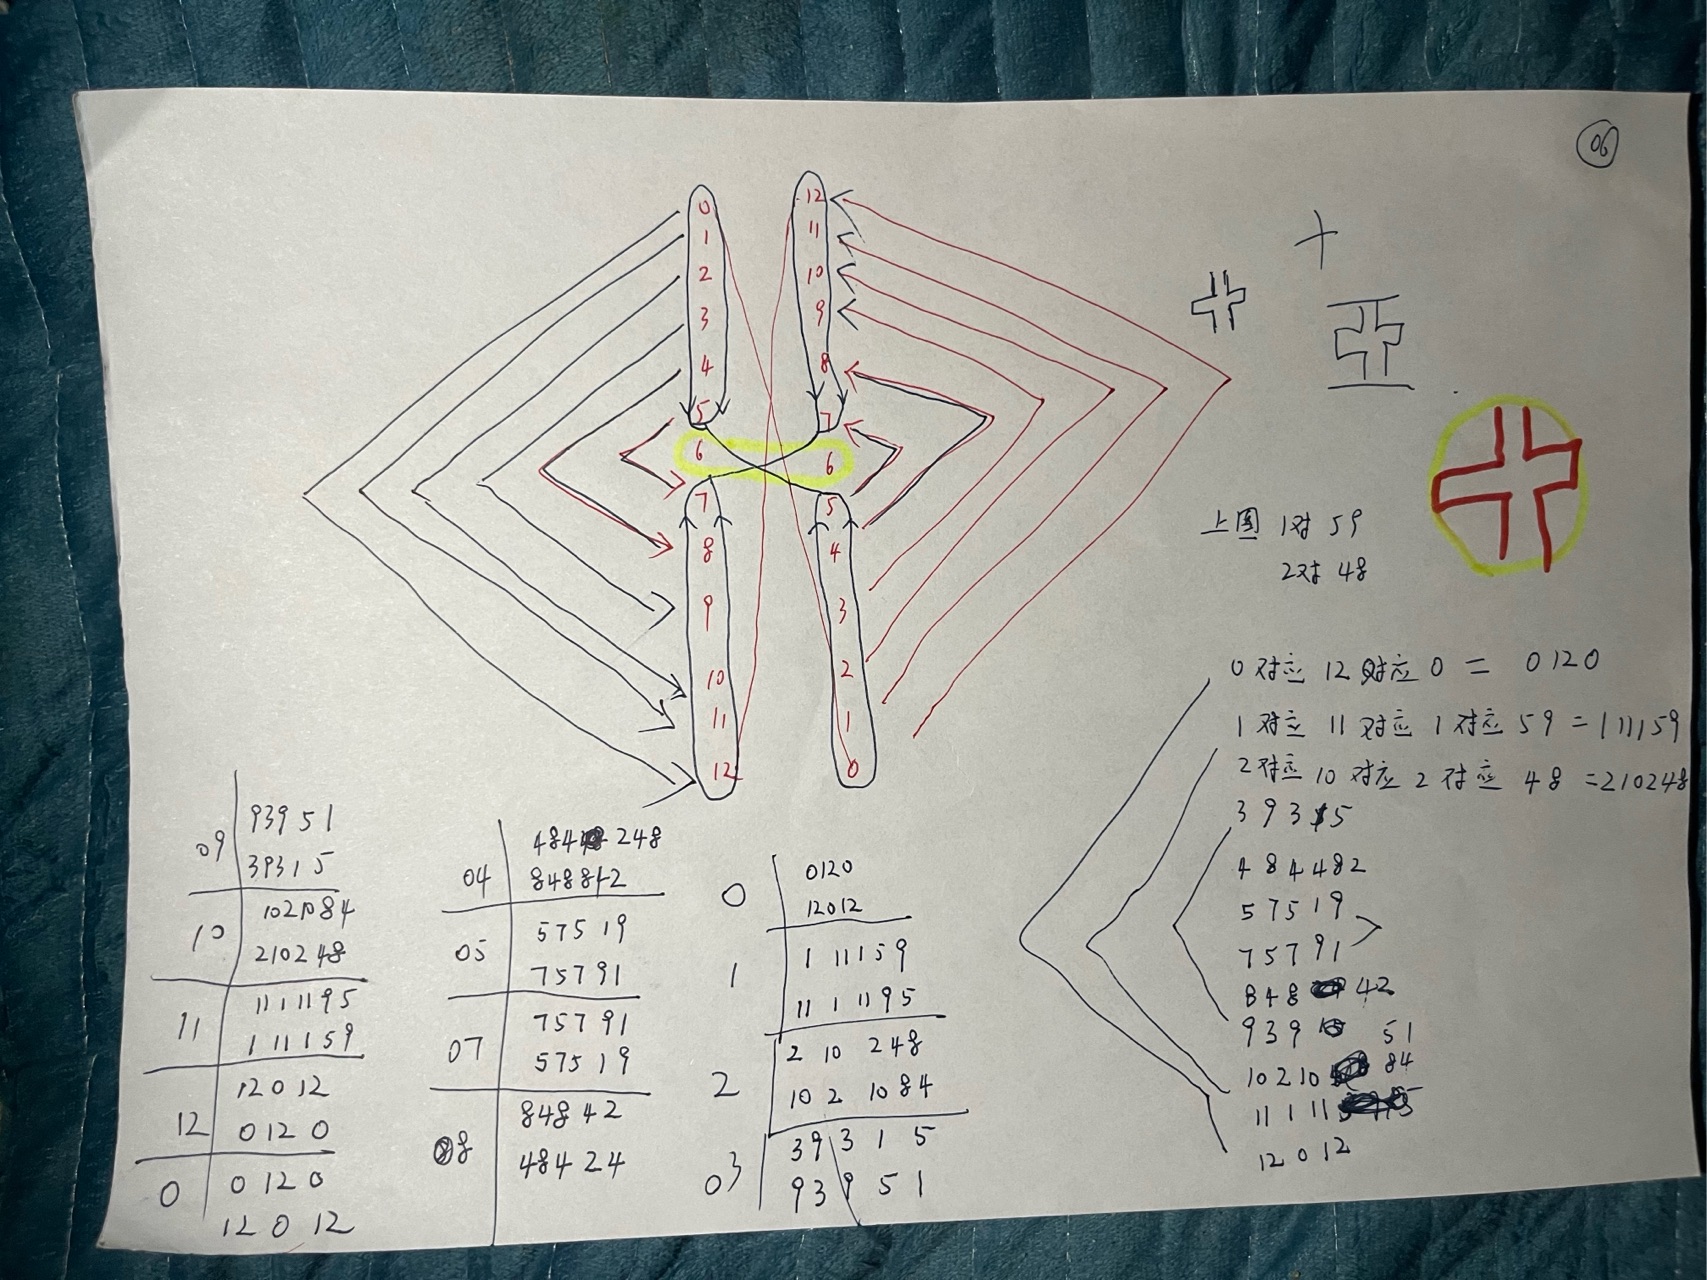 06
0 12
1 11
2 10
3 9
4 8
5 7
6 6
7 5
8 4
9 3
10 2
11 1
12 0
十
亞
上图 1对 59
2对 48
0对应 12对应 0 = 0120
1对应 11对应 1对应 59 = 111159
2对应 10对应 2对应 48 = 210248
39315
484482
57519
75791
848 42
939 51
10210 84
11 1 11
12 0 12
09
93951
39315
10
1021084
210248
11
1111195
111159
12
12012
0120
0
0120
12 0 12
04
484 248
848842
05
57519
75791
07
75791
57519
08
84842
48424
0
0120
12012
1
1 11159
11 1 1195
2
2 10 248
10 2 1084
03
39315
93951